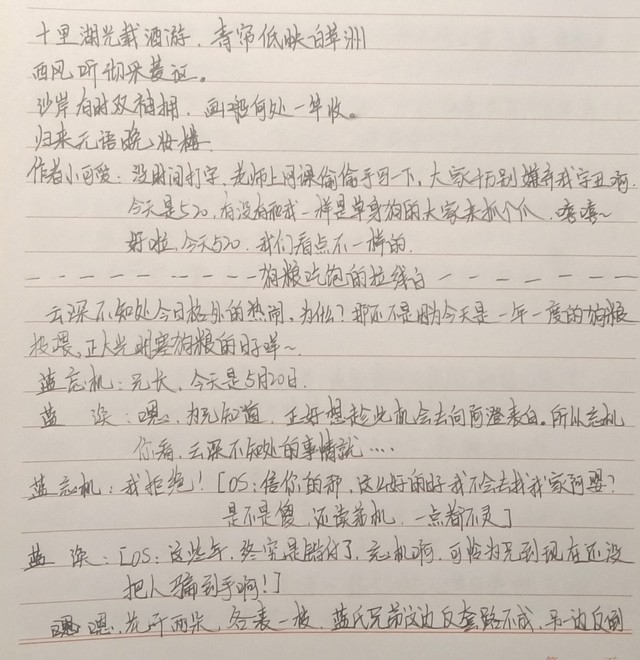 十里湖光载酒游，青帘低映白苹洲
西风听彻采菱讴。
沙岸有时双袖拥，画船何处一竿收。
归来无语晚妆楼。
作者小可爱：没时间打字，老师上网课偷偷手写一下，大家千万别嫌弃我字丑啊。
今天是520，有没有和我一样是单身狗的大家来抓个爪，嘻嘻~
好啦，今天520，我们看点不一样的。
－－－－－－－－狗粮吃饱的拉线白－－－－－－－
云深不知处今日格外的热闹，为什么？那还不是因为今天是一年一度的狗粮
投喂，正大光明塞狗粮的日子咩~
蓝忘机：兄长，今天是5月20日.
蓝 涣：嗯，为兄知道，正好想趁此机会去向阿澄表白。所以忘机
你看，云深不知处的事情就····
蓝忘机：我拒绝！[OS：信你的邪，这么好的日子我不会去找我家阿婴？
是不是傻，还读弟机，一点都不灵]
蓝 涣：[OS：这些年，终究是错付了，忘机啊，可怜为兄到现在还没
把人骗到手啊！]
嗯嗯，花开两朵，各表一枝，蓝氏兄弟这边反套路不成，另一边反倒